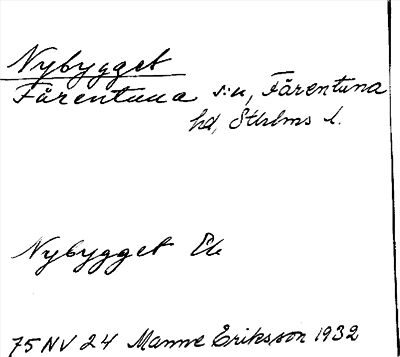 Nybygget
Färentuna s:n, Färentuna
hd, Sthlms l.
Nybygget
75 NV 24 Manne Eriksson 1932